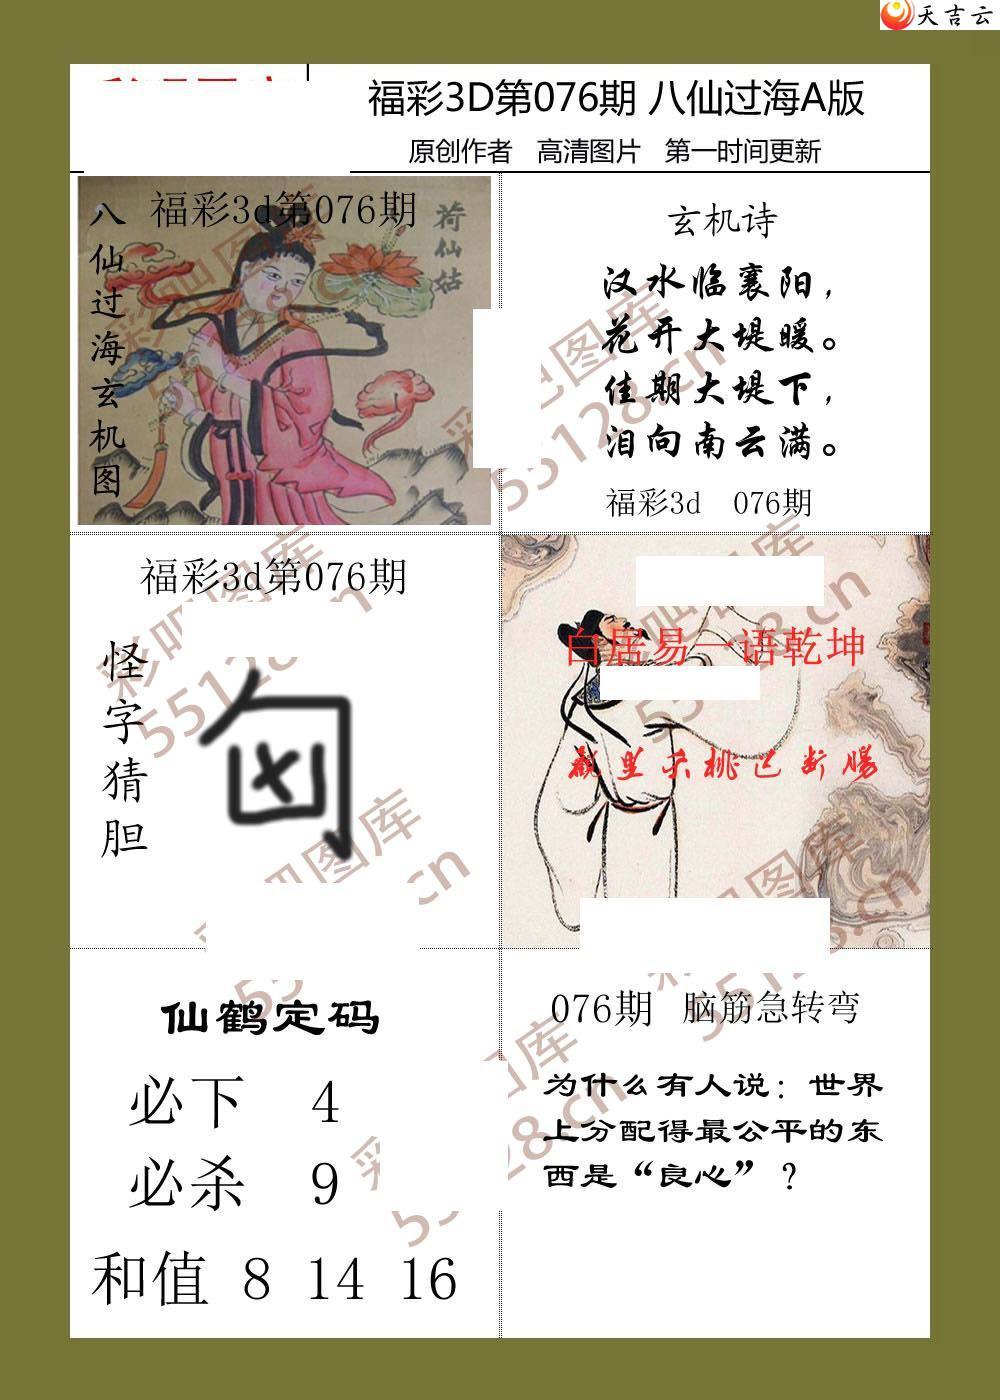 天吉云
福彩3D第076期 八仙过海A版
原创作者 高清图片 第一时间更新
福彩3d第076期
八仙过海玄机图
荷仙姑
玄机诗
汉水临襄阳，
花开大堤暖。
佳期大堤下，
泪向南云满。
福彩3d 076期
福彩3d第076期
怪字猜胆
白居易一语乾坤
仙鹤定码
必下 4
必杀 9
和值 8 14 16
076期 脑筋急转弯
为什么有人说：世界
上分配得最公平的东
西是“良心”？
彩吧图库
55128.cn